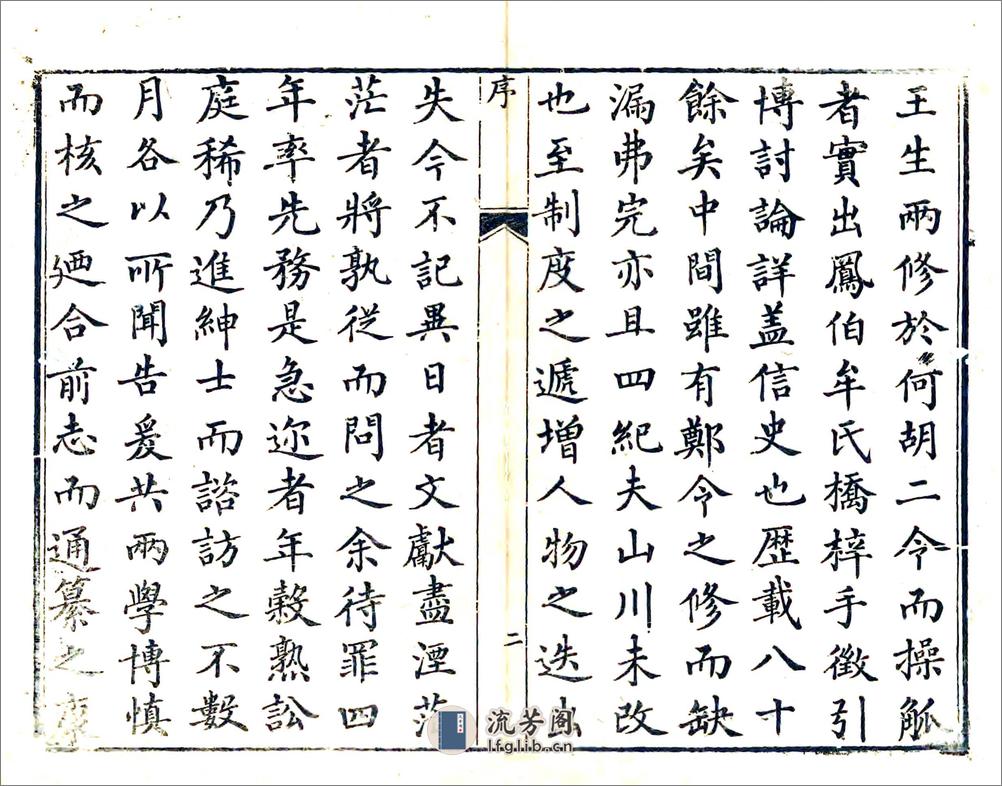 王生兩修於何胡二令而操觚
者實出鳳伯牟氏橋梓手徵引
博討論詳蓋信史也歷載八十
餘矣中間雖有鄭令之修而缺
漏弗完亦且四紀夫山川未改
也至制度之遞增人物之迭出
序
二
失今不記異日者文獻盡湮茫
茫者將孰從而問之余待罪四
年率先務是急迩者年穀熟訟
庭稀乃進紳士而諮訪之不數
月各以所聞告爰共兩學博慎
而核之廼合前志而通纂之
流芳阁
lfglib.cn